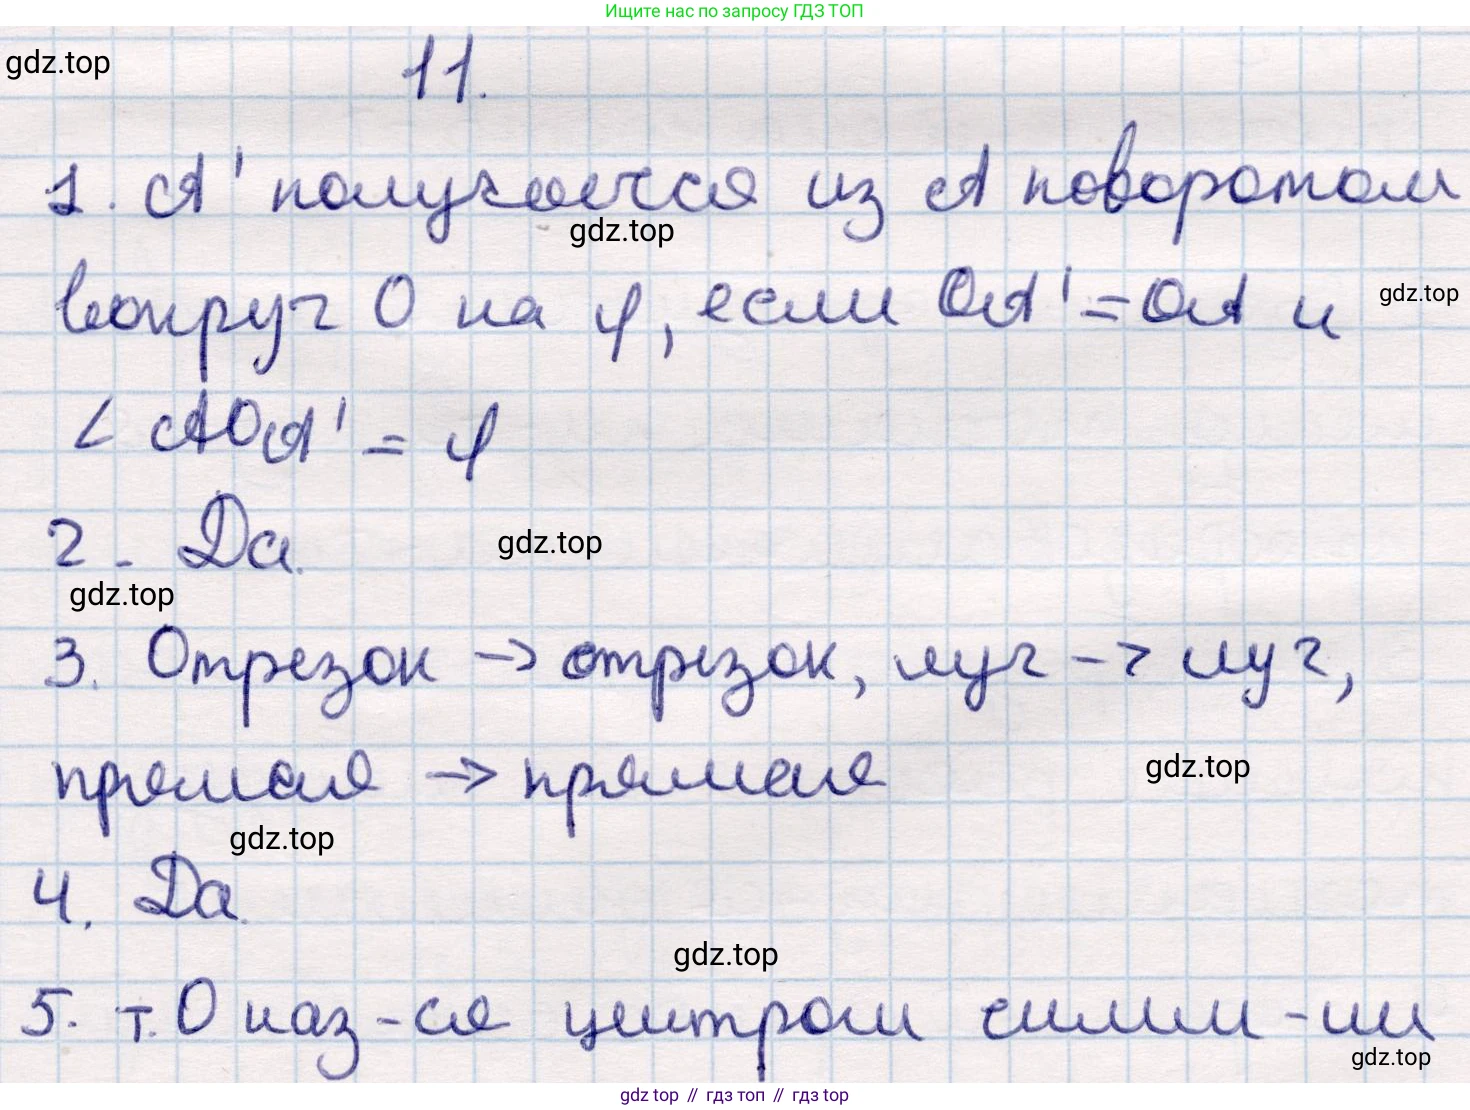 Ищите нас по запросу ГДЗ ТОП
gdz.top
11.
1. A' получается из A поворотом
gdz.top
вокруг O на φ, если OA' = OA и
gdz.top
∠ AOA' = φ
2. Да.
gdz.top
gdz.top
3. Отрезок → отрезок, луч → луч,
прямая → прямая
gdz.top
gdz.top
4. Да.
gdz.top
5. т. O наз-ся центром симм-ии
gdz.top
gdz top // гдз топ // гдз top